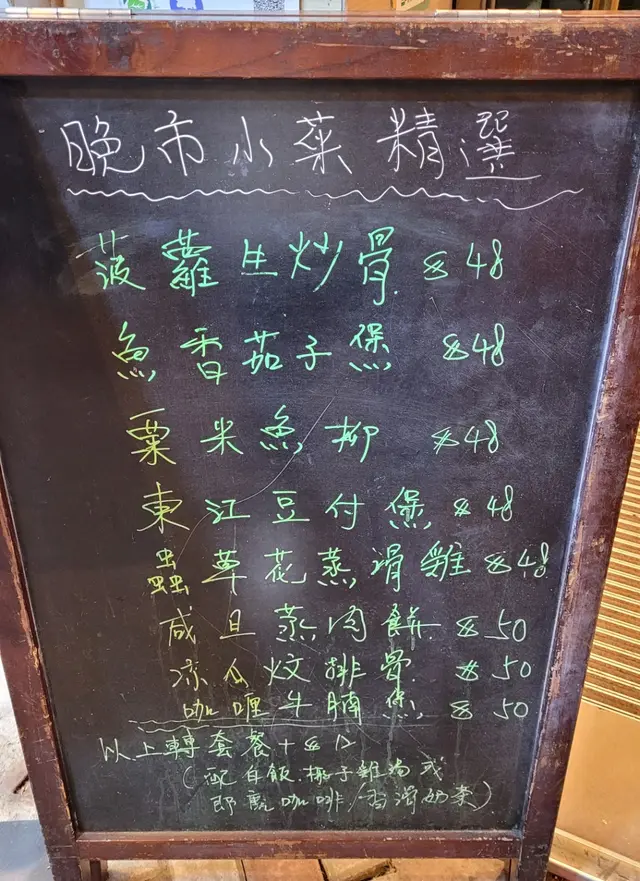 晚市小菜精選
菠蘿生炒骨 $48
魚香茄子煲 $48
粟米魚柳 $48
東江豆付煲 $48
蟲草花蒸滑雞 $48
咸旦蒸肉餅 $50
凉瓜炆排骨 $50
咖喱牛腩煲 $50
以上轉套餐+$12
(配白飯.椰子雞湯或
即磨咖啡/香滑奶茶)